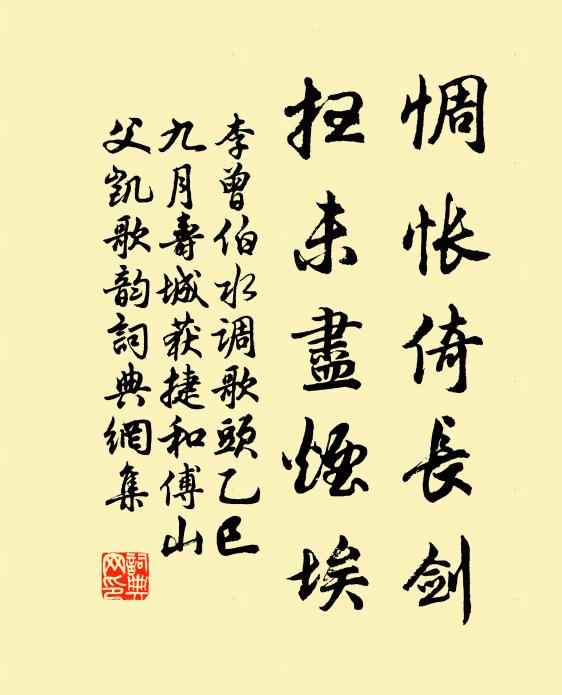 惆怅倚長剑
扫未盡煙埃
李曾伯水调歌頭乙巳
九月壽城获捷和傅山
父凯歌韵詞典網集
詞典網印